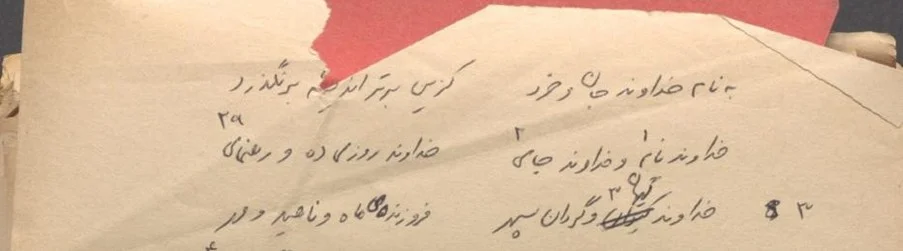 به نام خداوند جان و خرد کزین برتر اندیشه برنگذرد
۲۹
خداوند نام۱ و خداوند جای۲ خداوند روزی ده و رهنمای
۳ خداوند کیهان۳ و گردان سپهر فروزنده ماه و ناهید و مهر